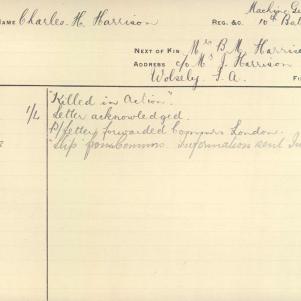 NAME Charles H. Harrison
REG. &C. Machine Gu
10th Bat
NEXT OF KIN Mrs B. M. Harriso
ADDRESS c/o Mrs J. Harrison
Wolsely S.A.
"Killed in Action".
1/4 Letter acknowledged.
forwarded London.
"Slip from Information sent